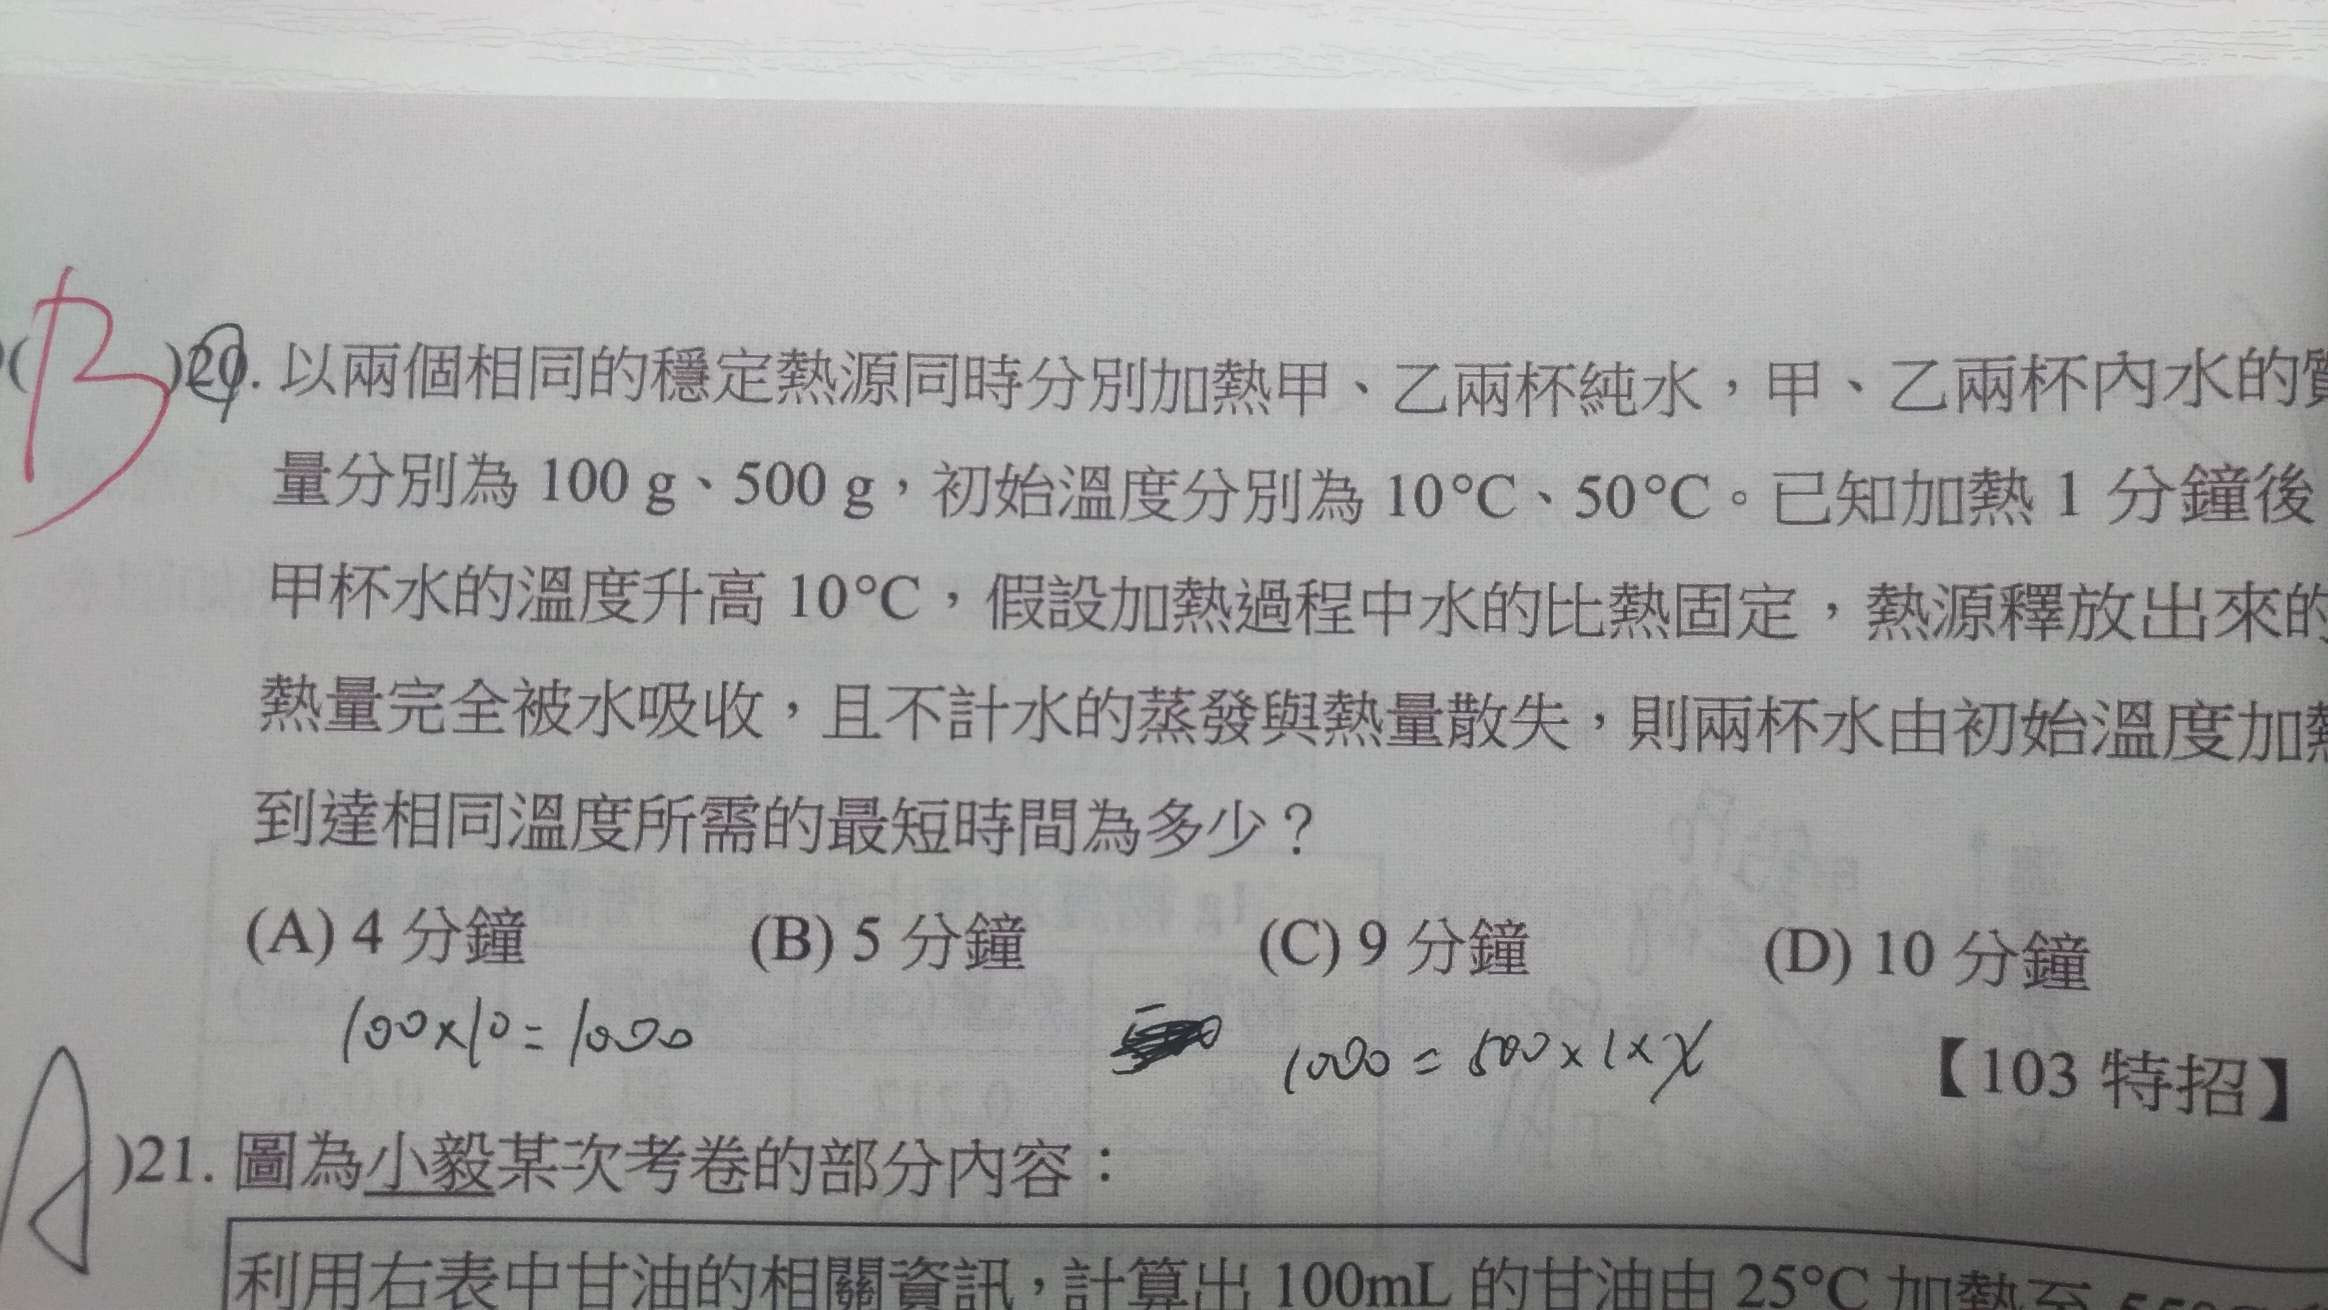 (B)20. 以兩個相同的穩定熱源同時分別加熱甲、乙兩杯純水，甲、乙兩杯內水的質
量分別為 100 g、500 g，初始溫度分別為 10°C、50°C。已知加熱 1 分鐘後
甲杯水的溫度升高 10°C，假設加熱過程中水的比熱固定，熱源釋放出來的
熱量完全被水吸收，且不計水的蒸發與熱量散失，則兩杯水由初始溫度加熱
到達相同溫度所需的最短時間為多少？
(A) 4 分鐘 (B) 5 分鐘 (C) 9 分鐘 (D) 10 分鐘
100×10=1000 1000=500×1×x
【103 特招】
A )21. 圖為小毅某次考卷的部分內容：
利用右表中甘油的相關資訊，計算出 100mL 的甘油由 25°C 加熱至